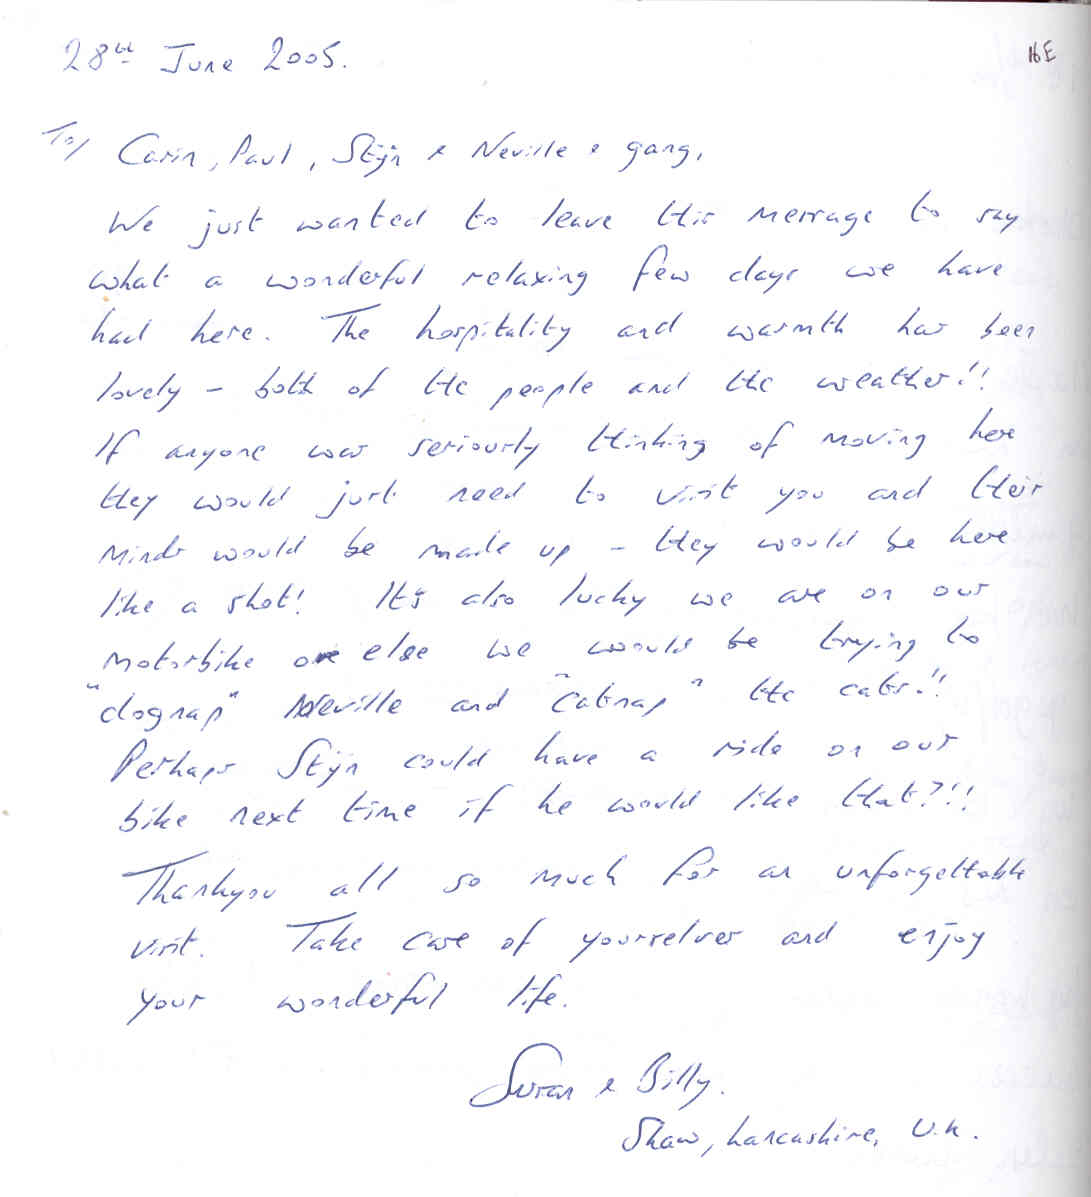 28th June 2005.
16E
To/ Carin, Paul, Stijn & Neville & gang,
We just wanted to leave this message to say
what a wonderful relaxing few days we have
had here. The hospitality and warmth has been
lovely - both of the people and the weather!!
If anyone was seriously thinking of moving here
they would just need to visit you and their
minds would be made up - they would be here
like a shot! It's also lucky we are on our
motorbike or else we would be trying to
"dognap" Neville and "catnap" the cats!!
Perhaps Stijn could have a ride on our
bike next time if he would like that?!!
Thankyou all so much for an unforgettable
visit. Take care of yourselves and enjoy
your wonderful life.
Susan & Billy.
Shaw, Lancashire, U.K.